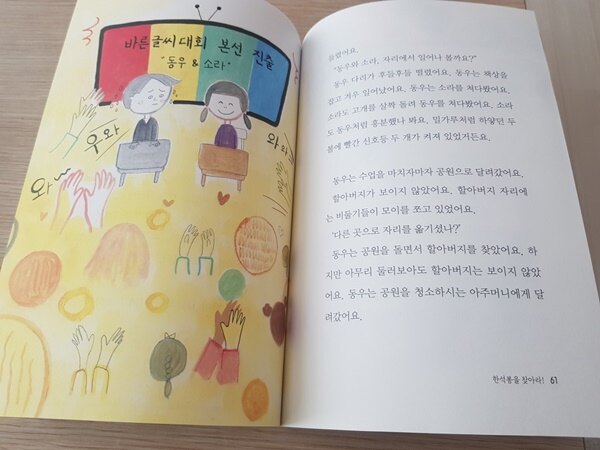 바른글씨대회 본선 진출
"동우 & 소라"
우와
와와
와
들렸어요.
"동우와 소라, 자리에서 일어나 볼까요?"
동우 다리가 후들후들 떨렸어요. 동우는 책상을
잡고 겨우 일어났어요. 동우는 소라를 쳐다봤어요.
소라도 고개를 살짝 돌려 동우를 쳐다봤어요. 소라
도 동우처럼 흥분했나 봐요. 밀가루처럼 하얗던 두
볼에 빨간 신호등 두 개가 켜져 있었거든요.
동우는 수업을 마치자마자 공원으로 달려갔어요.
할아버지가 보이지 않았어요. 할아버지 자리에
는 비둘기들이 모이를 쪼고 있었어요.
'다른 곳으로 자리를 옮기셨나?'
동우는 공원을 돌면서 할아버지를 찾았어요. 하
지만 아무리 둘러보아도 할아버지는 보이지 않았
어요. 동우는 공원을 청소하시는 아주머니에게 달
려갔어요.
한석봉을 찾아라! 61